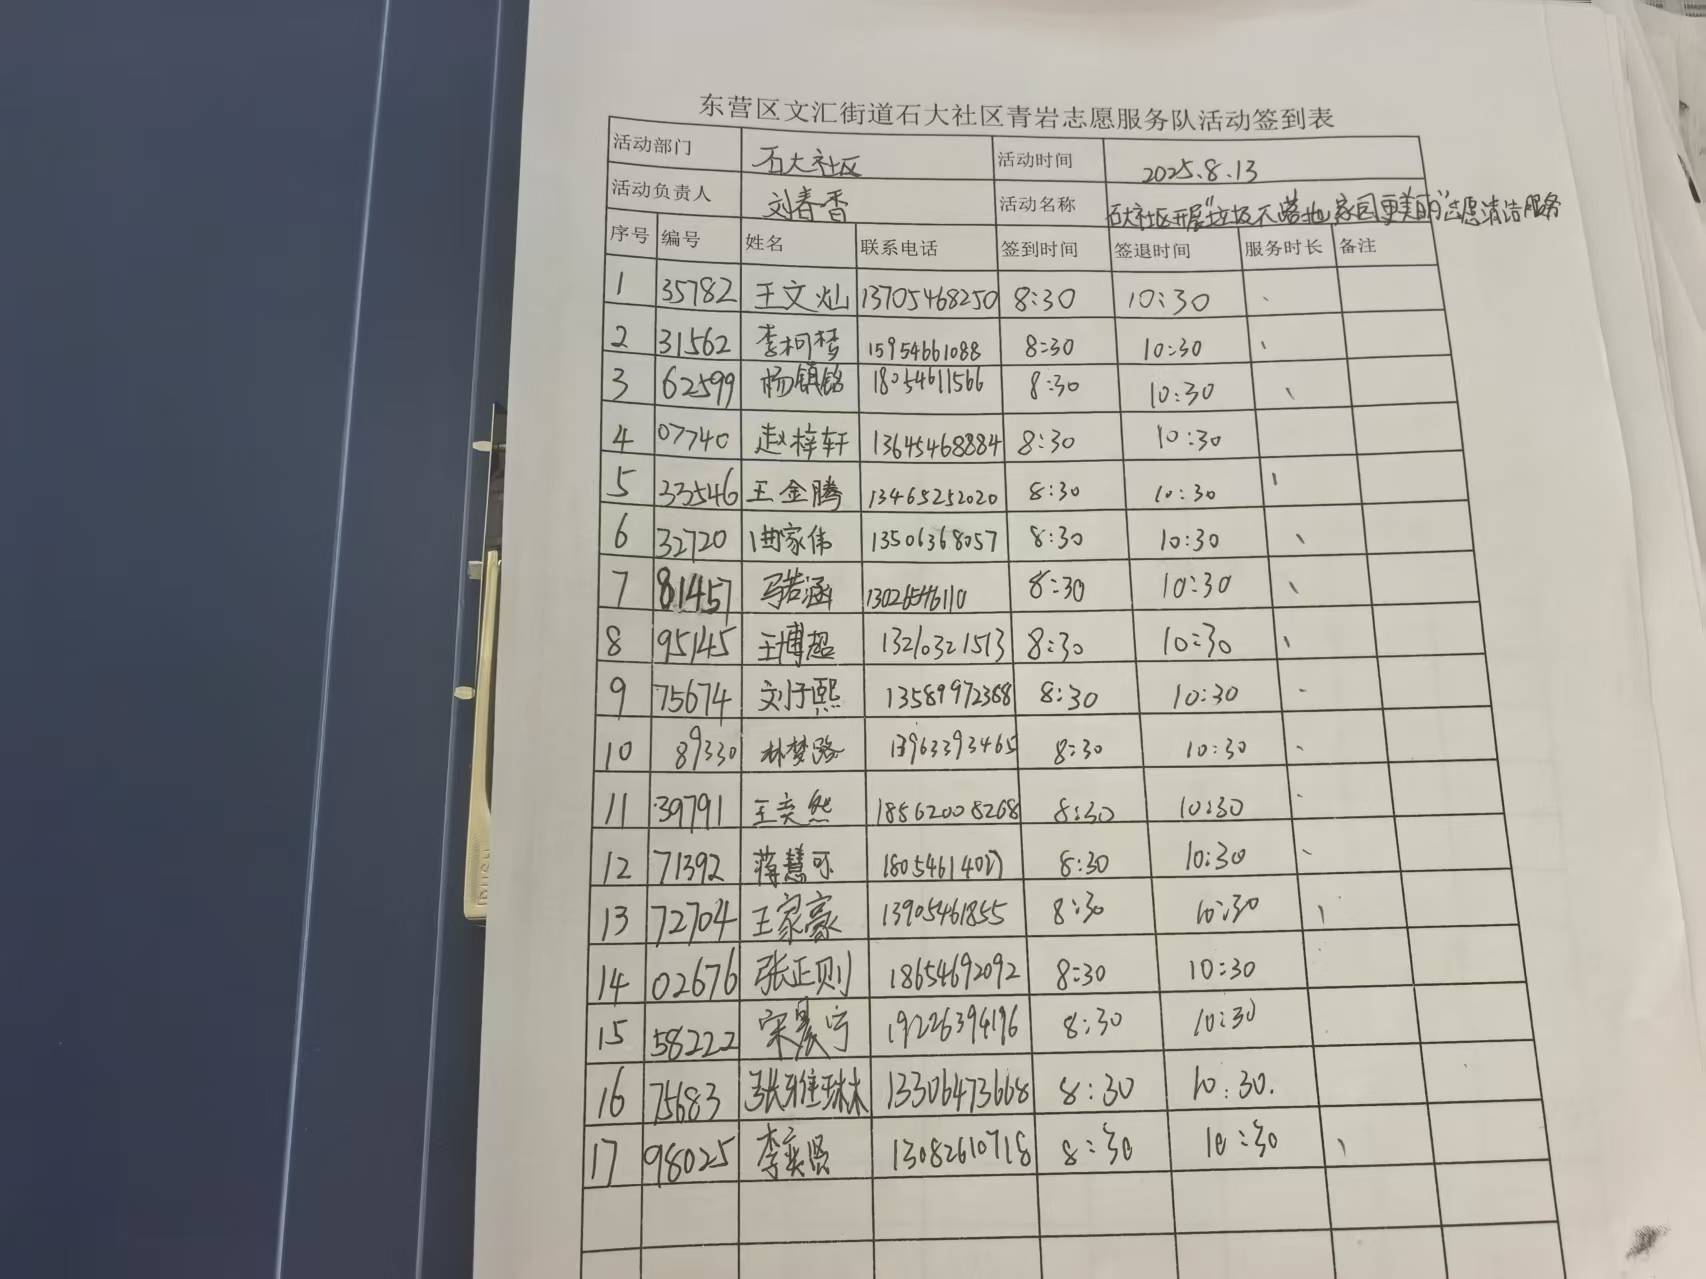 东营区文汇街道石大社区青岩志愿服务队活动签到表
活动部门 石大社区 活动时间 2025.8.13
活动负责人 刘春香 活动名称 石大社区开展"垃圾不落地,家园更美丽"志愿清洁服务
序号 编号 姓名 联系电话 签到时间 签退时间 服务时长 备注
1 35782 王文灿 13705468250 8:30 10:30
2 31562 李柯梦 15954661088 8:30 10:30
3 62599 杨镇铭 18054611566 8:30 10:30
4 07740 赵梓轩 13645468884 8:30 10:30
5 33546 王金腾 13465252020 8:30 10:30
6 32720 曲家伟 13506368057 8:30 10:30
7 81457 马若涵 8:30 10:30
8 95145 王博超 13210321513 8:30 10:30
9 75674 刘子熙 13589972368 8:30 10:30
10 89330 林梦璐 13963393465 8:30 10:30
11 39791 王奕然 18562008268 8:30 10:30
12 71392 蒋慧可 8:30 10:30
13 72704 王家豪 13905461855 8:30 10:30
14 02676 张正则 18654692092 8:30 10:30
15 58222 宋晨宁 19226394196 8:30 10:30
16 75683 张雅琳 13306473668 8:30 10:30.
17 98025 李奕贤 13082610718 8:30 10:30